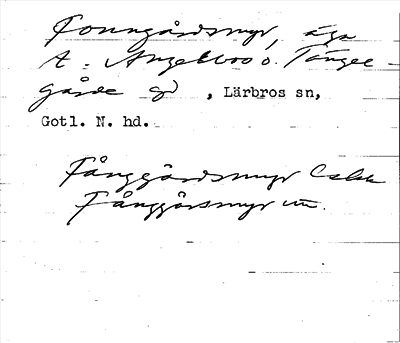 Fonngårdsmyr, äga
t. Angelbos o. Tängel-
gårde gd, Lärbros sn,
Gotl. N. hd.
Fånggårdsmyr
Fånggårsmyr